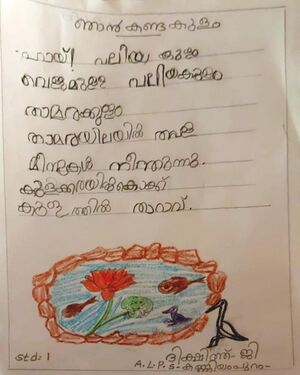 ഞാൻ കണ്ട കുളം
ഹായ്! വലിയ കുളം
വെള്ളമുള്ള വലിയകുളം
താമരക്കുളം
താമരയിലയിൽ തവള
മീനുകൾ നീന്തുന്നു.
കുളക്കരയിൽ കൊക്ക്
കുളത്തിൽ താറാവ്.
std: 1
ദീക്ഷിത്ത്- ജി
A.L.P.S- കണ്ണിയംപുറം-